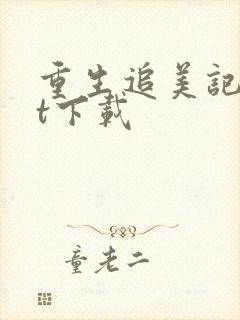 重生追美記
t下載
童老二